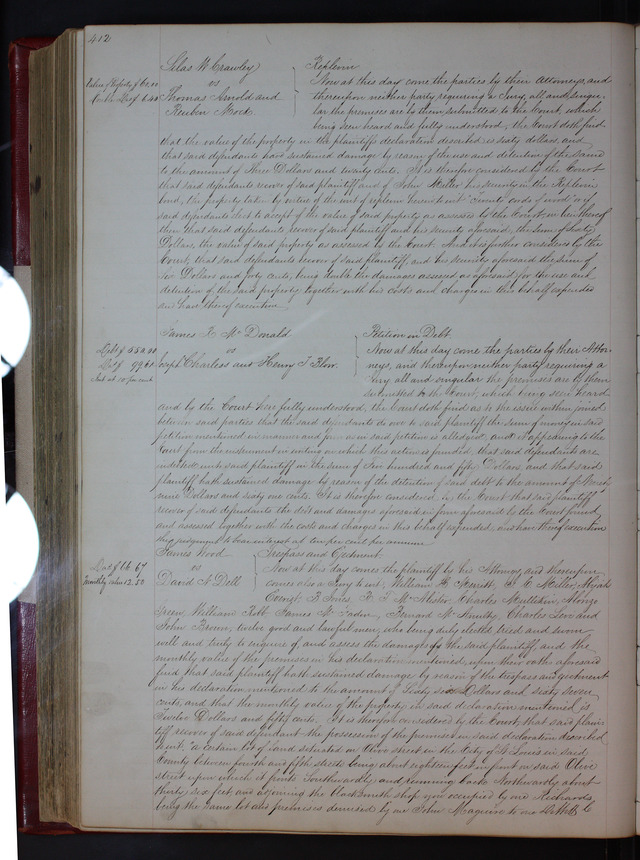 412
Silas W. Crawley
vs
Thomas Arnold and
Reuben
Replevin
Now at this day come the parties by their Attorneys, and
thereupon neither party requiring a Jury, all, and singu-
lar the premises are by them submitted to the Court, which
being seen heard and fully understood, the Court doth find
that the value of the property in the plaintiffs declaration described is sixty dollars, and
that said defendants have sustained damage by reason of the use and detention of the same
to the amount of Three Dollars and twenty cents. It is therefore considered by the Court
that said defendants recover of said plaintiff and of John Miller his security in the Replevin
bond, the property taken by virtue of the writ of replevin herein to wit "Twenty cords of wood" or if
said defendants elect to accept of the value of said property as assessed by the Court, in lieu thereof
then that said defendants recover of said plaintiff and his security aforesaid, the sum of Sixty
Dollars, the value of said property as assessed by the Court. And it is further considered by the
Court, that said defendants recover of said plaintiff, and his security aforesaid the sum of
Six Dollars and forty cents, being double the damages assessed as aforesaid for the use and
detention of the said property together with his costs and charges in this behalf expended
and have thereof execution
James R. McDonald
vs
Joseph Charless and Henry T. Blow
Debt $550.00
Int at 10 per cent
Petition in Debt.
Now at this day come the parties by their Attor-
neys, and thereupon, neither party requiring a
Jury all and singular the premises are by them
submitted to the Court, which being seen heard
and by the Court here fully understood, the Court doth find as to the issue within joined
between said parties that the said defendants do owe to said plaintiff the sum of money in said
petition mentioned in manner and form as in said petition is alledged, and it appearing to the
Court from the instrument in writing on which this action is founded, that said defendants are
indebted unto said plaintiff in the sum of Five hundred and fifty Dollars, and that said
plaintiff hath sustained damage by reason of the detention of said debt to the amount of Ninety
nine Dollars and sixty one cents. It is therefore considered by the Court that said plaintiff
recover of said defendants the debt and damages aforesaid in form aforesaid by the Court found,
and assessed together with the costs and charges in this behalf expended, and have thereof execution
this judgment to bear interest at ten per cent per annum
James Wood
vs
David N. Dell
Dad $16.67
Monthly value 12.50
Trespass and Ejectment.
Now at this day comes the plaintiff by his Attorney, and thereupon
comes also a Jury to wit, William Hewitt, Miller, Elijah
Jones, McAlister, Charles Mullikin, Alonzo
Green, William Robb, James McFaden, Bernard McKimthy, Charles Love and
John Brown, twelve good and lawful men, who being duly elected tried and sworn
well and truly to enquire of and assess the damages of the said plaintiff, and the
monthly value of the premises in his declaration mentioned, upon their oaths aforesaid
find that said plaintiff hath sustained damage by reason of the trespass and ejectment
in his declaration mentioned to the amount of Sixty six Dollars and sixty seven
cents, and that the monthly value of the property in said declaration mentioned is
Twelve Dollars and fifty cents. It is therefore considered by the Court, that said plain-
tiff recover of said defendant the possession of the premises in said declaration described
to wit: "a certain lot of land situated on Olive street in the City of St Louis in said
County between fourth and fifth streets being about eighteen feet in front on said Olive
street upon which it fronts Southwardly and running back Northwardly about
thirty six feet, and adjoining the Blacksmith shop now occupied by one Richards
being the same lot and premises demised by one John Maguire to one